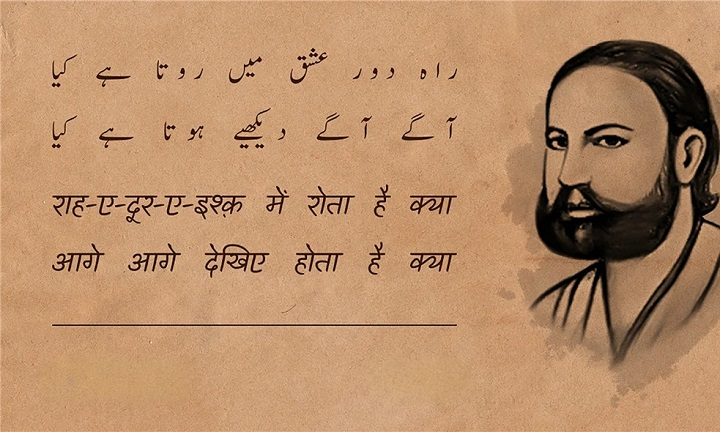 راہ دور عشق میں روتا ہے کیا
آگے آگے دیکھیے ہوتا ہے کیا
राह-ए-दूर-ए-इश्क़ में रोता है क्या
आगे आगे देखिए होता है क्या